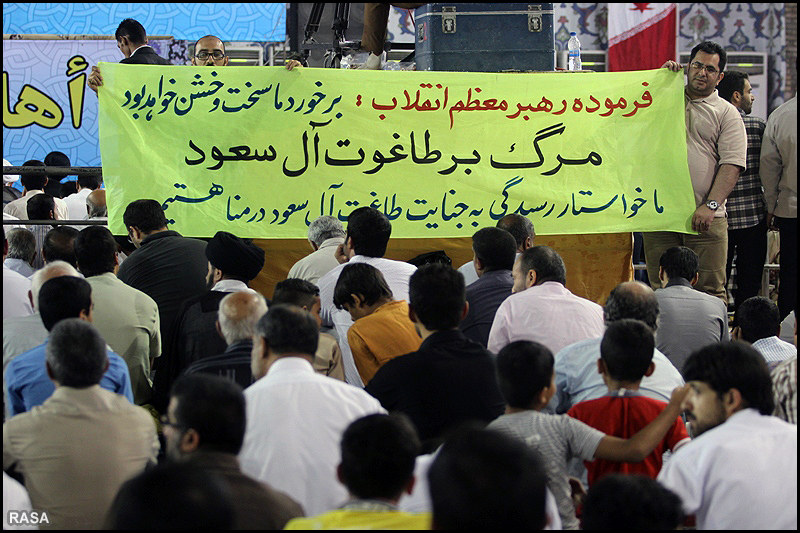 فرموده رهبر معظم انقلاب : برخورد ما سخت و خشن خواهد بود
مرگ بر طاغوت آل سعود
ما خواستار رسیدگی به جنایت طاغت آل سعود در منا هستیم
أها
RASA